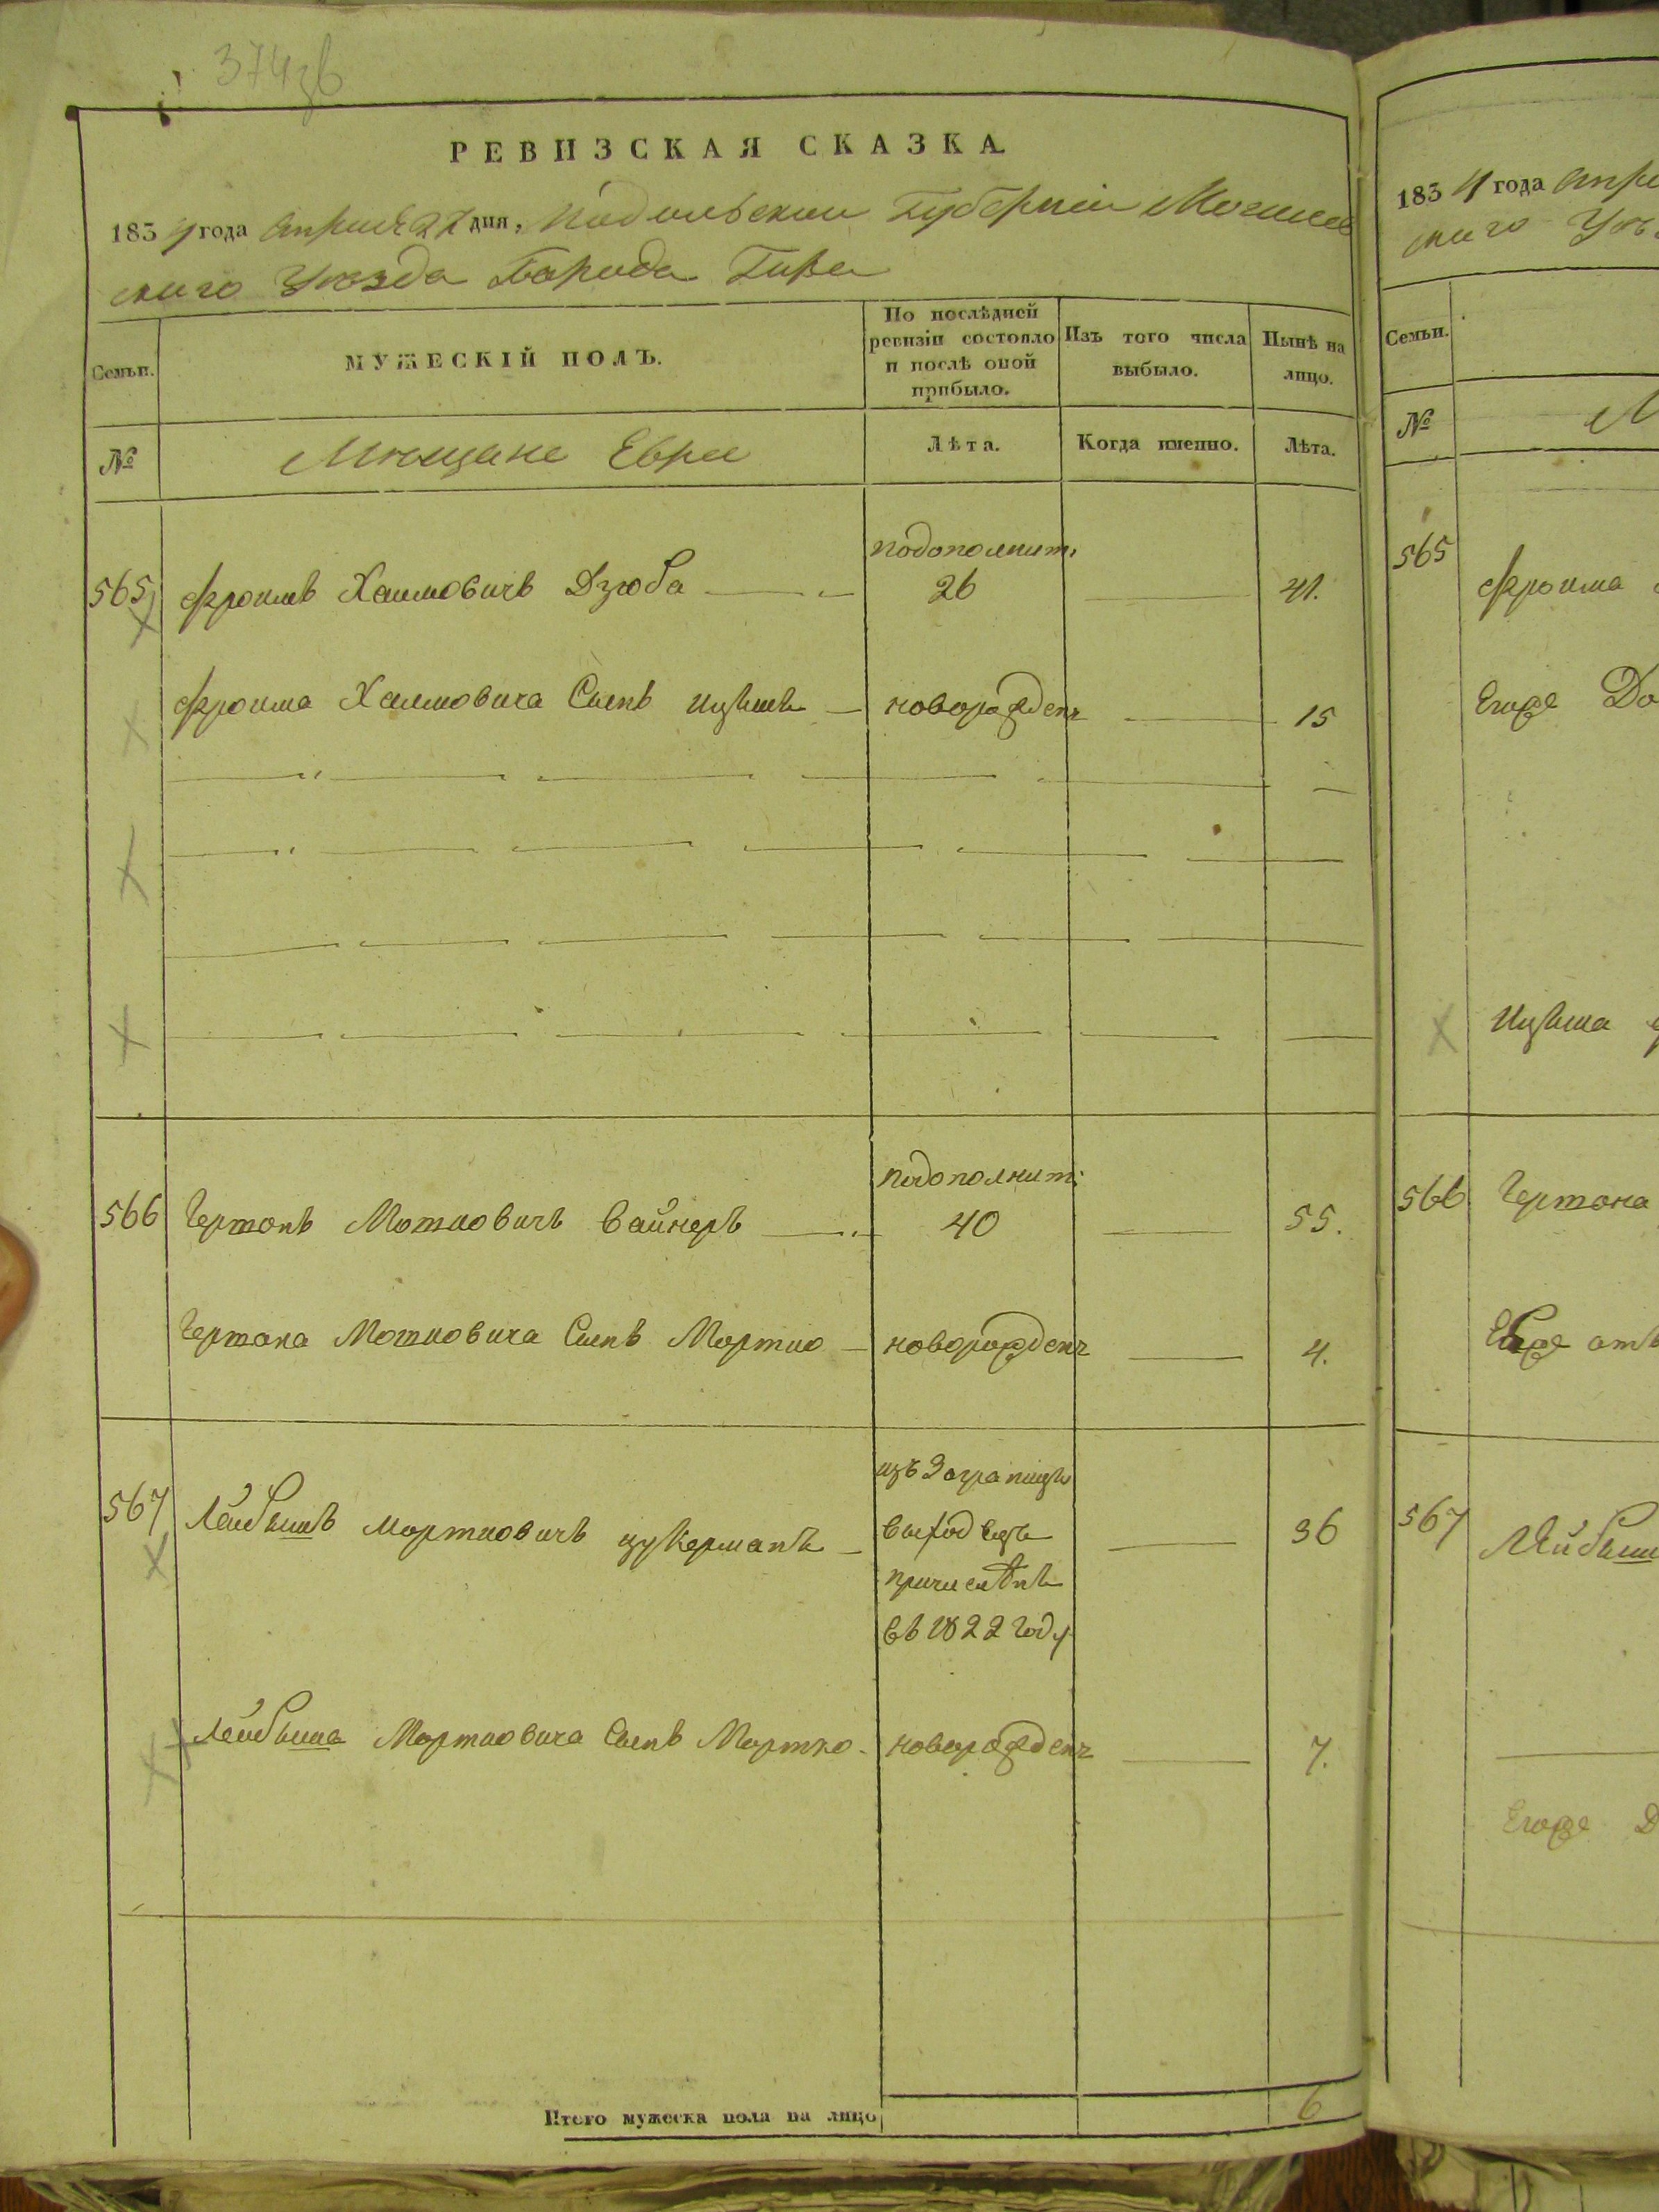 374зв
РЕВИЗСКАЯ СКАЗКА.
1834 года апреля 27 дня, Подольской Губернии Могилев
ского Уезда Города Бара
Семьи.
МУЖЕСКІЙ ПОЛЪ.
По послѣдней ревизіи состояло и послѣ оной прибыло.
Изъ того числа выбыло.
Нынѣ на лицо.
№
Мещане Евреи
Лѣта.
Когда именно.
Лѣта.
подополнит.
565 Фроимъ Хаимовичъ Дзюба 26 41.
Фроима Хаимовича Сынъ Ицъ новорожденъ 15
подополнит:
566 Мошковичъ Вайнеръ 40 55.
Мошковича Сынъ Мортко новорожденъ 4.
567 Лейбышъ Мортковичъ Цукерманъ
изъ Заграницы
выходецъ
причисленъ
въ 1822 году
36
Лейбыша Мортковича Сынъ Мортко новорожденъ 7.
Итого мужеска пола на лицо 6
1834 года апре
ского Уѣ
Семьи.
№
М
565
Фроима
Егоже До
566
Егоже отъ
567 Лейбыш
Егоже Д